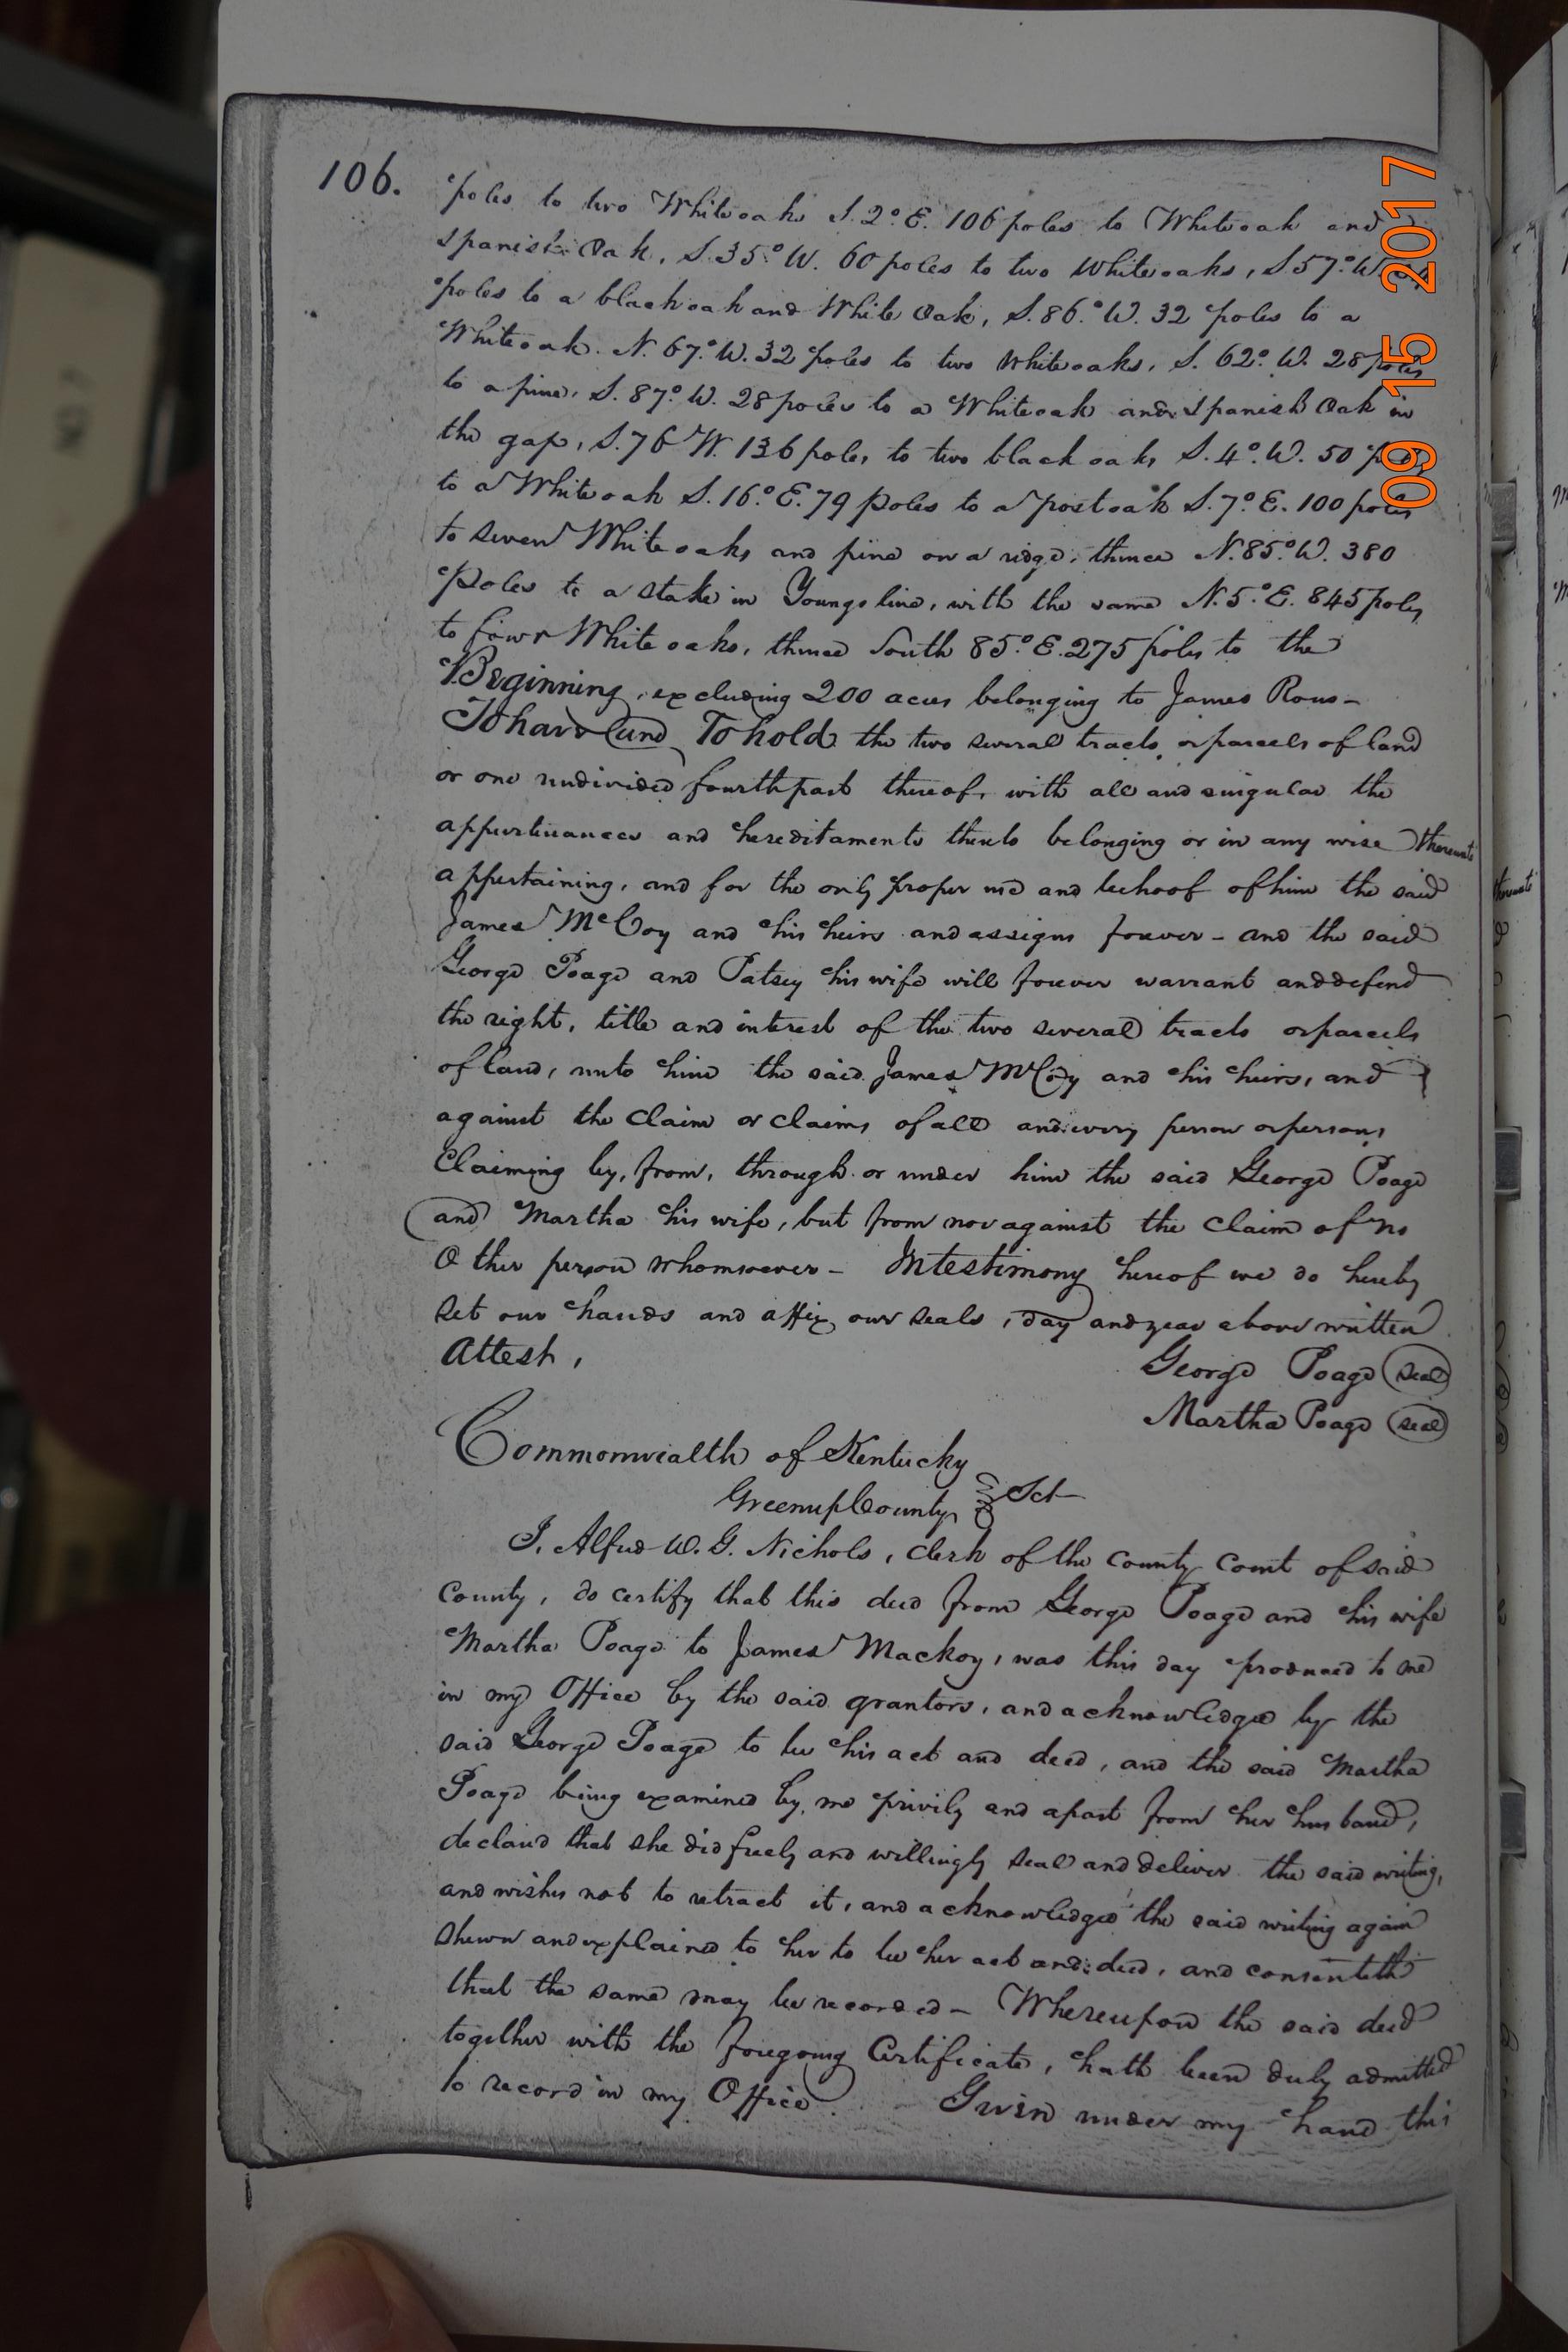 106.
poles to two Whiteoaks S. 2° E. 106 poles to Whiteoak and
Spanish Oak, S. 35° W. 60 poles to two Whiteoaks, S 57° W.
poles to a black oak and White Oak, S. 86.° W. 32 poles to a
Whiteoak. N. 67.° W. 32 poles to two Whiteoaks, S. 62° W. 28 poles
to a pine, S. 87° W. 28 poles to a Whiteoak and Spanish Oak in
the gap, S. 76 W. 136 poles, to two black oaks S. 4° W. 50
to a Whiteoak S. 16° E. 79 poles to a post oak S. 7° E. 100 poles
to seven White oaks and pine on a ridge, thence N. 85° W. 380
Poles to a stake in Youngs line, with the same N. 5° E. 845 poles
to four White oaks, thence South 85° E. 275 poles to the
Beginning, excluding 200 acres belonging to James Rous -
To have and To hold the two several tracts or parcels of land
or one undivided fourth part thereof, with all and singular the
appurtenances and hereditaments thereto belonging or in any wise thereunto
appertaining, and for the only proper use and behoof of him the said
James McCoy and his heirs and assigns forever - and the said
George Poage and Patsey his wife will forever warrant and defend
the right, title and interest of the two several tracts or parcels
of land, unto him the said James McCoy and his heirs, and
against the claim or claims of all and every person or persons
Claiming by, from, through or under him the said George Poage
and Martha his wife, but from nor against the claim of no
Other person whomsoever - In testimony hereof we do hereby
set our hands and affix our seals, day and year above written
Attest,
George Poage (seal)
Martha Poage (seal)
Commonwealth of Kentucky
Greenup County Sct
I, Alfred W. G. Nichols, clerk of the county court of said
County, do certify that this deed from George Poage and his wife
Martha Poage to James Mackoy, was this day produced to me
in my Office by the said grantors, and acknowledged by the
said George Poage to be his act and deed, and the said Martha
Poage being examined by me privily and apart from her husband,
declared that she did freely and willingly seal and deliver the said writing,
and wishes not to retract it, and acknowledged the said writing again
shewn and explained to her to be her act and deed, and consenteth
that the same may be recorded - Whereupon the said deed
together with the foregoing Certificate, hath been duly admitted
to record in my Office. Given under my hand this
09 15 2017